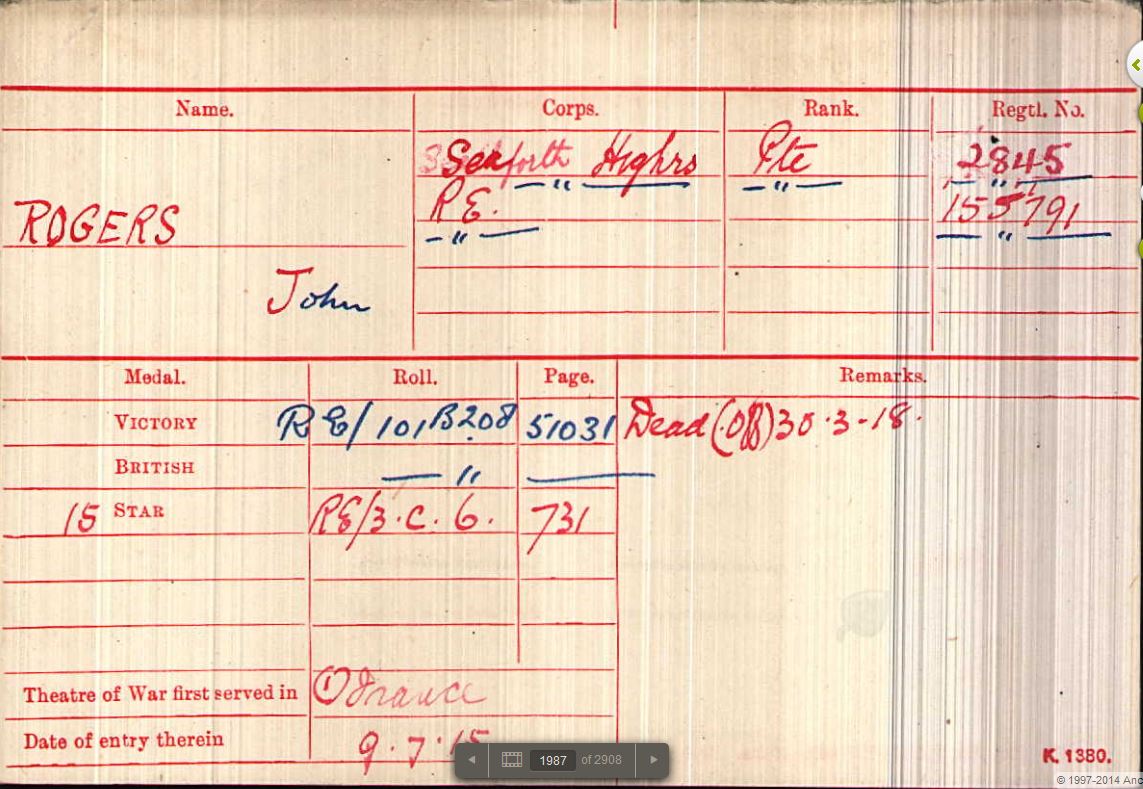 Name. Corps. Rank. Regtl. No.
Seaforth Highrs Pte 2845
— " — — " — — " —
R E. 155791
— " — — " —
ROGERS
John
Medal. Roll. Page. Remarks.
VICTORY R E/101B208 51031 Dead (Off) 30.3-18.
BRITISH — " —
15 STAR RE/3.C.6. 731
Theatre of War first served in (1) France
Date of entry therein 9.7.15
1987 of 2908
K. 1380.
© 1997-2014 Anc